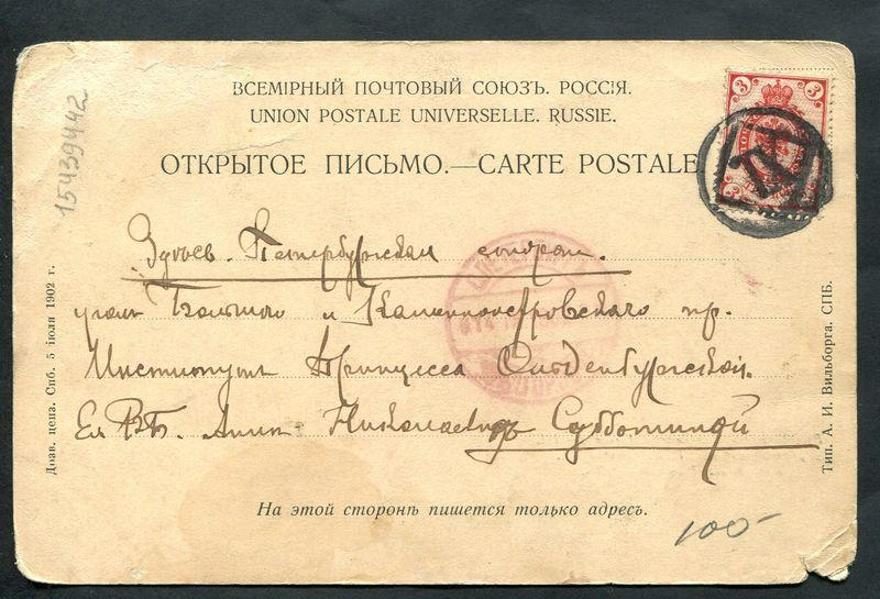 ВСЕМІРНЫЙ ПОЧТОВЫЙ СОЮЗЪ. РОССІЯ.
UNION POSTALE UNIVERSELLE. RUSSIE.
ОТКРЫТОЕ ПИСЬМО.—CARTE POSTALE.
3 3
15439442
Здѣсь. Петербургская сторон.
уголъ Большого и Каменноостровскаго пр.
Институтъ Принцессы Ольденбургской.
Ея Аннѣ Николаевнѣ Субботиной
На этой сторонѣ пишется только адресъ.
100-
Дозв. ценз. Спб. 5 іюля 1902 г.
Тип. А. И. Вильборга. СПБ.